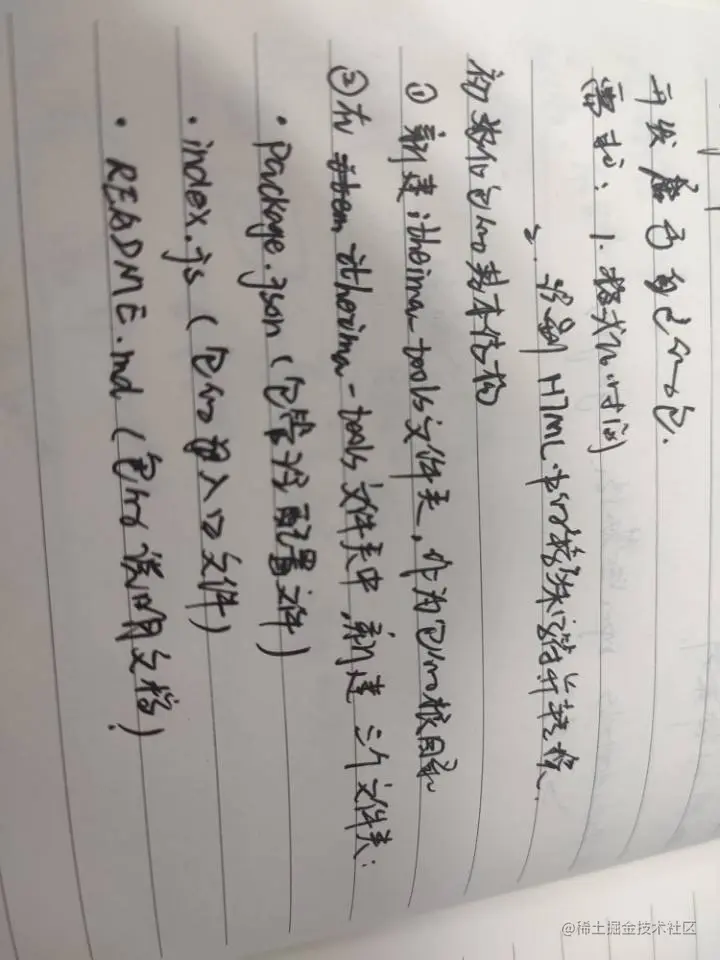 开发属于自己的包.
需求: 1. 格式化时间
2. 识别 HTML 中的特殊字符并转换.
初始化包的基本结构
① 新建 itheima-tools 文件夹, 作为包的根目录
② 在 itheima-tools 文件夹中, 新建三个文件夹:
• package.json (包管理配置文件)
• index.js (包的入口文件)
• README.md (包的说明文档)
@稀土掘金技术社区